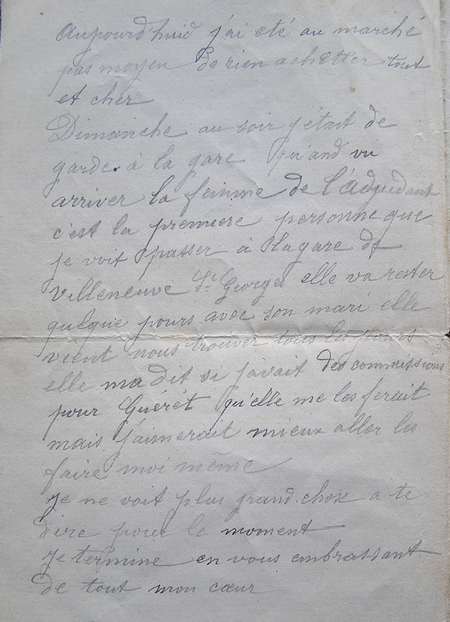 Aujourd'huit j'ai été au marché
pas moyen de rien achetter tout
et cher
Dimanche au soir j'était de
garde à la gare qu'and vu
arriver la femme de l'Adjudant
c'est la premiere personne que
je voit passer à la gare de
Villeneuve St Georges elle va rester
quelque jours avec son mari elle
vient nous trouver tous les jours
elle ma dit si j'avait des commissions
pour Gueret qu'elle me les ferait
mais j'aimerait mieux aller les
faire moi même
Je ne voit plus grand-chose à te
dire pour le moment
Je termine en vous embrassant
de tout mon cœur